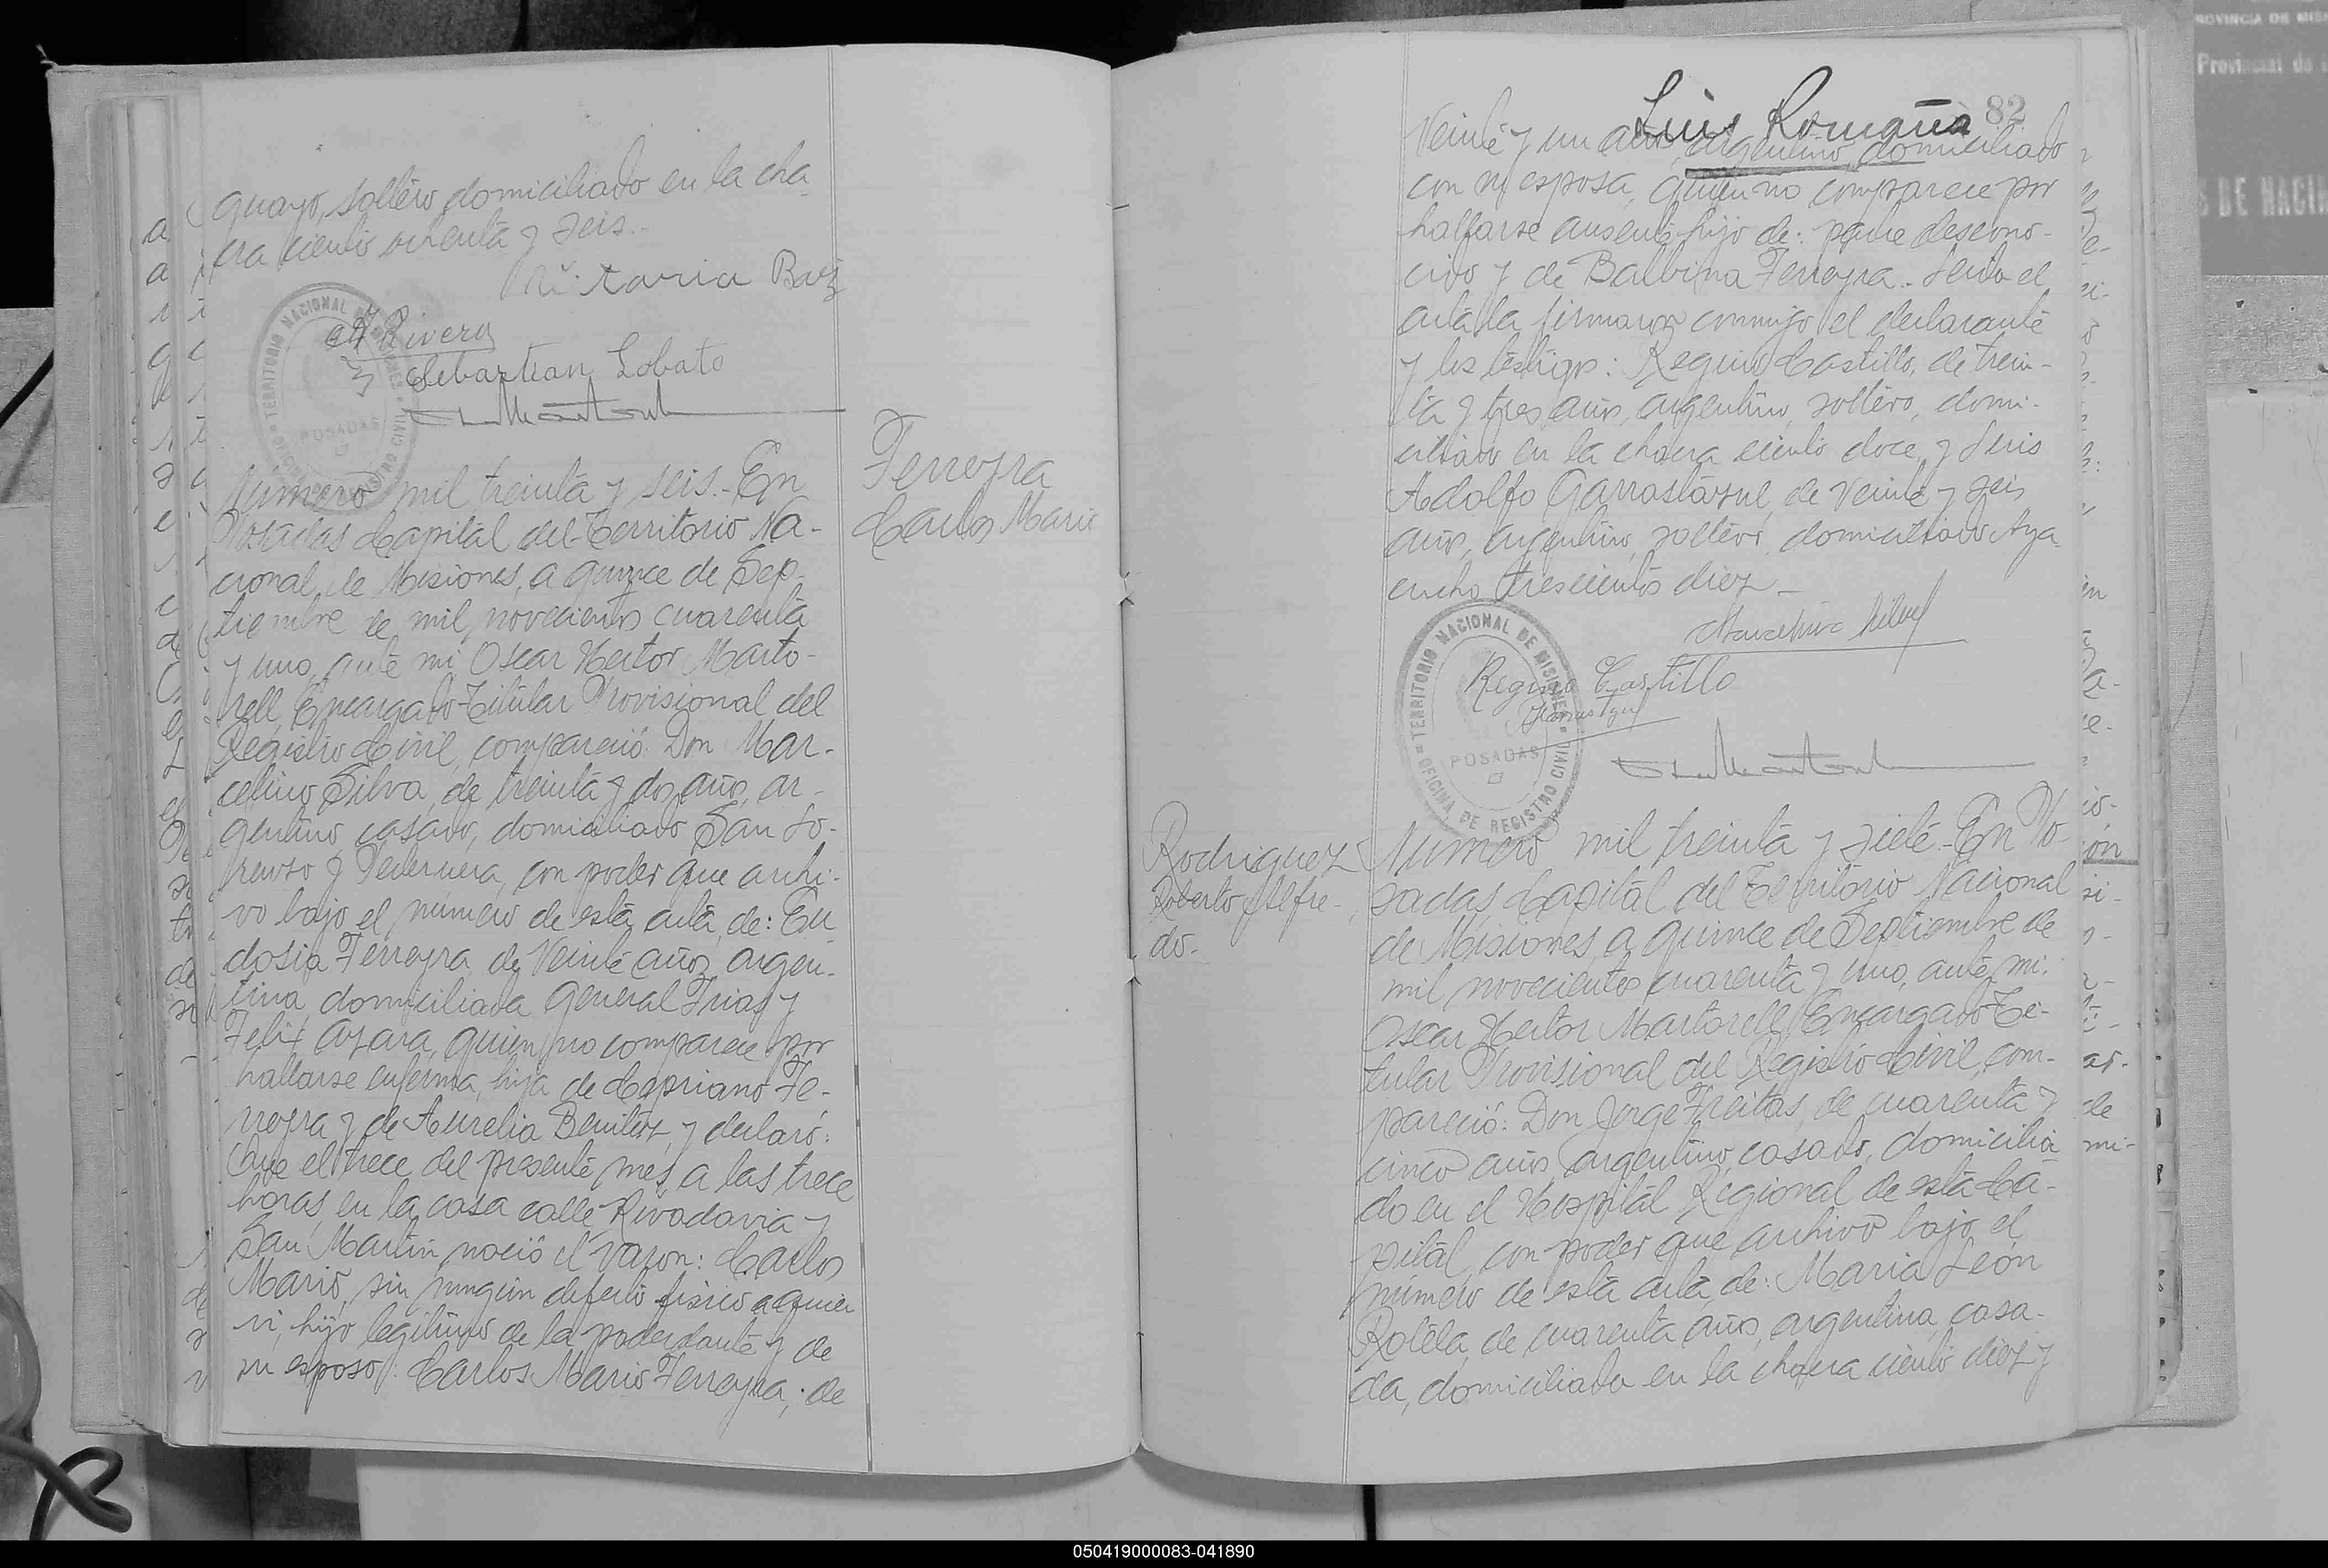 guayo, soltero domiciliado en la cha
cra ciento ochenta y seis.-
Rivero
Sebastian Lobato
TERRITORIO NACIONAL DE MISIONES
POSADAS
OFICINA DE REGISTRO CIVIL
Ferreyra
Carlos Mario
Número mil treinta y seis.- En
Posadas Capital del Territorio Na-
cional de Misiones, a quince de Sep-
tiembre de mil novecientos cuarenta
y uno, ante mi Oscar Hector Marto-
rell, Encargado Titular Provisional del
Registro Civil, compareció: Don Mar-
celino Silva, de treinta y dos años, ar-
gentino, casado, domiciliado San Lo-
renzo y Pedernera, con poder que archi-
vo bajo el número de esta acta, de: Eu
dosia Ferreyra de veinte años, argen-
tina, domiciliada General Frias y
Felix Azara, quien no comparece por
hallarse enferma, hija de Cipriano Fe-
rreyra y de Aurelia Benitez, y declaró:
Que el trece del presente mes, a las trece
horas, en la casa calle Rivadavia y
San Martin nació el varon: Carlos
Mario, sin ningun defecto fisico a quien
vi, hijo legitimo de la poderdante y de
su esposo: Carlos Mario Ferreyra, de
Luis Romaña
82
Veinte y un años, argentino, domiciliado
con su esposa, quien no comparece por
hallarse ausente, hijo de: padre descono-
cido y de Balbina Ferreyra.- Leida el
acta la firmaron conmigo el declarante
y los testigos: Regino Castillo, de trein-
ta y tres años, argentino, soltero, domi-
ciliado en la chacra ciento doce, y Luis
Adolfo Garrastazul, de veinte y seis
años, argentino, soltero, domiciliado Aya
cucho trescientos diez.-
Marcelino Silva
Regino Castillo
TERRITORIO NACIONAL DE MISIONES
POSADAS
OFICINA DE REGISTRO CIVIL
Rodriguez
Roberto Alfre-
do.-
Número mil treinta y siete.- En Po-
sadas, Capital del Territorio Nacional
de Misiones, a quince de Septiembre de
mil novecientos cuarenta y uno, ante mi:
Oscar Hector Martorell, Encargado Ti-
tular Provisional del Registro Civil, com-
pareció: Don Jorge Freitas, de cuarenta y
cinco años, argentino, casado, domicilia
do en el Hospital Regional de esta Ca-
pital, con poder que archivo bajo el
número de esta acta, de: Maria León
Rotela de cuarenta años, argentina, casa-
da, domiciliada en la chacra ciento diez y
050419000083-041890